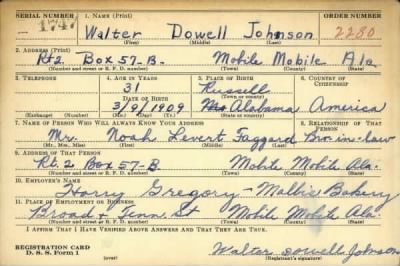 SERIAL NUMBER 1. NAME (Print) ORDER NUMBER
1747 Walter Dowell Johnson 2280
(First) (Middle) (Last)
2. ADDRESS (Print)
Rt2 Box 57-B. Mobile Mobile Ala.
(Number and street or R. F. D. number) (Town) (County) (State)
3. TELEPHONE 4. AGE IN YEARS 5. PLACE OF BIRTH 6. COUNTRY OF CITIZENSHIP
31 Russell
DATE OF BIRTH (Town or county)
3/9/1909 Alabama America
(Exchange) (Number) (Mo.) (Day) (Yr.) (State or country)
7. NAME OF PERSON WHO WILL ALWAYS KNOW YOUR ADDRESS 8. RELATIONSHIP OF THAT PERSON
Mr. Noah Levert Taggard Bro. in-law
(Mr., Mrs., Miss) (First) (Middle) (Last)
9. ADDRESS OF THAT PERSON
Rt. 2 Box 57-B Mobile Mobile Ala.
(Number and street or R. F. D. number) (Town) (County) (State)
10. EMPLOYER'S NAME
Harry Gregory - Malbis Bakery
11. PLACE OF EMPLOYMENT OR BUSINESS
Broad & Tenn. St Mobile Mobile Ala.
(Number and street or R. F. D. number) (Town) (County) (State)
I AFFIRM THAT I HAVE VERIFIED ABOVE ANSWERS AND THAT THEY ARE TRUE.
REGISTRATION CARD
D. S. S. Form 1 (over) Walter Dowell Johnson
(Registrant's signature)